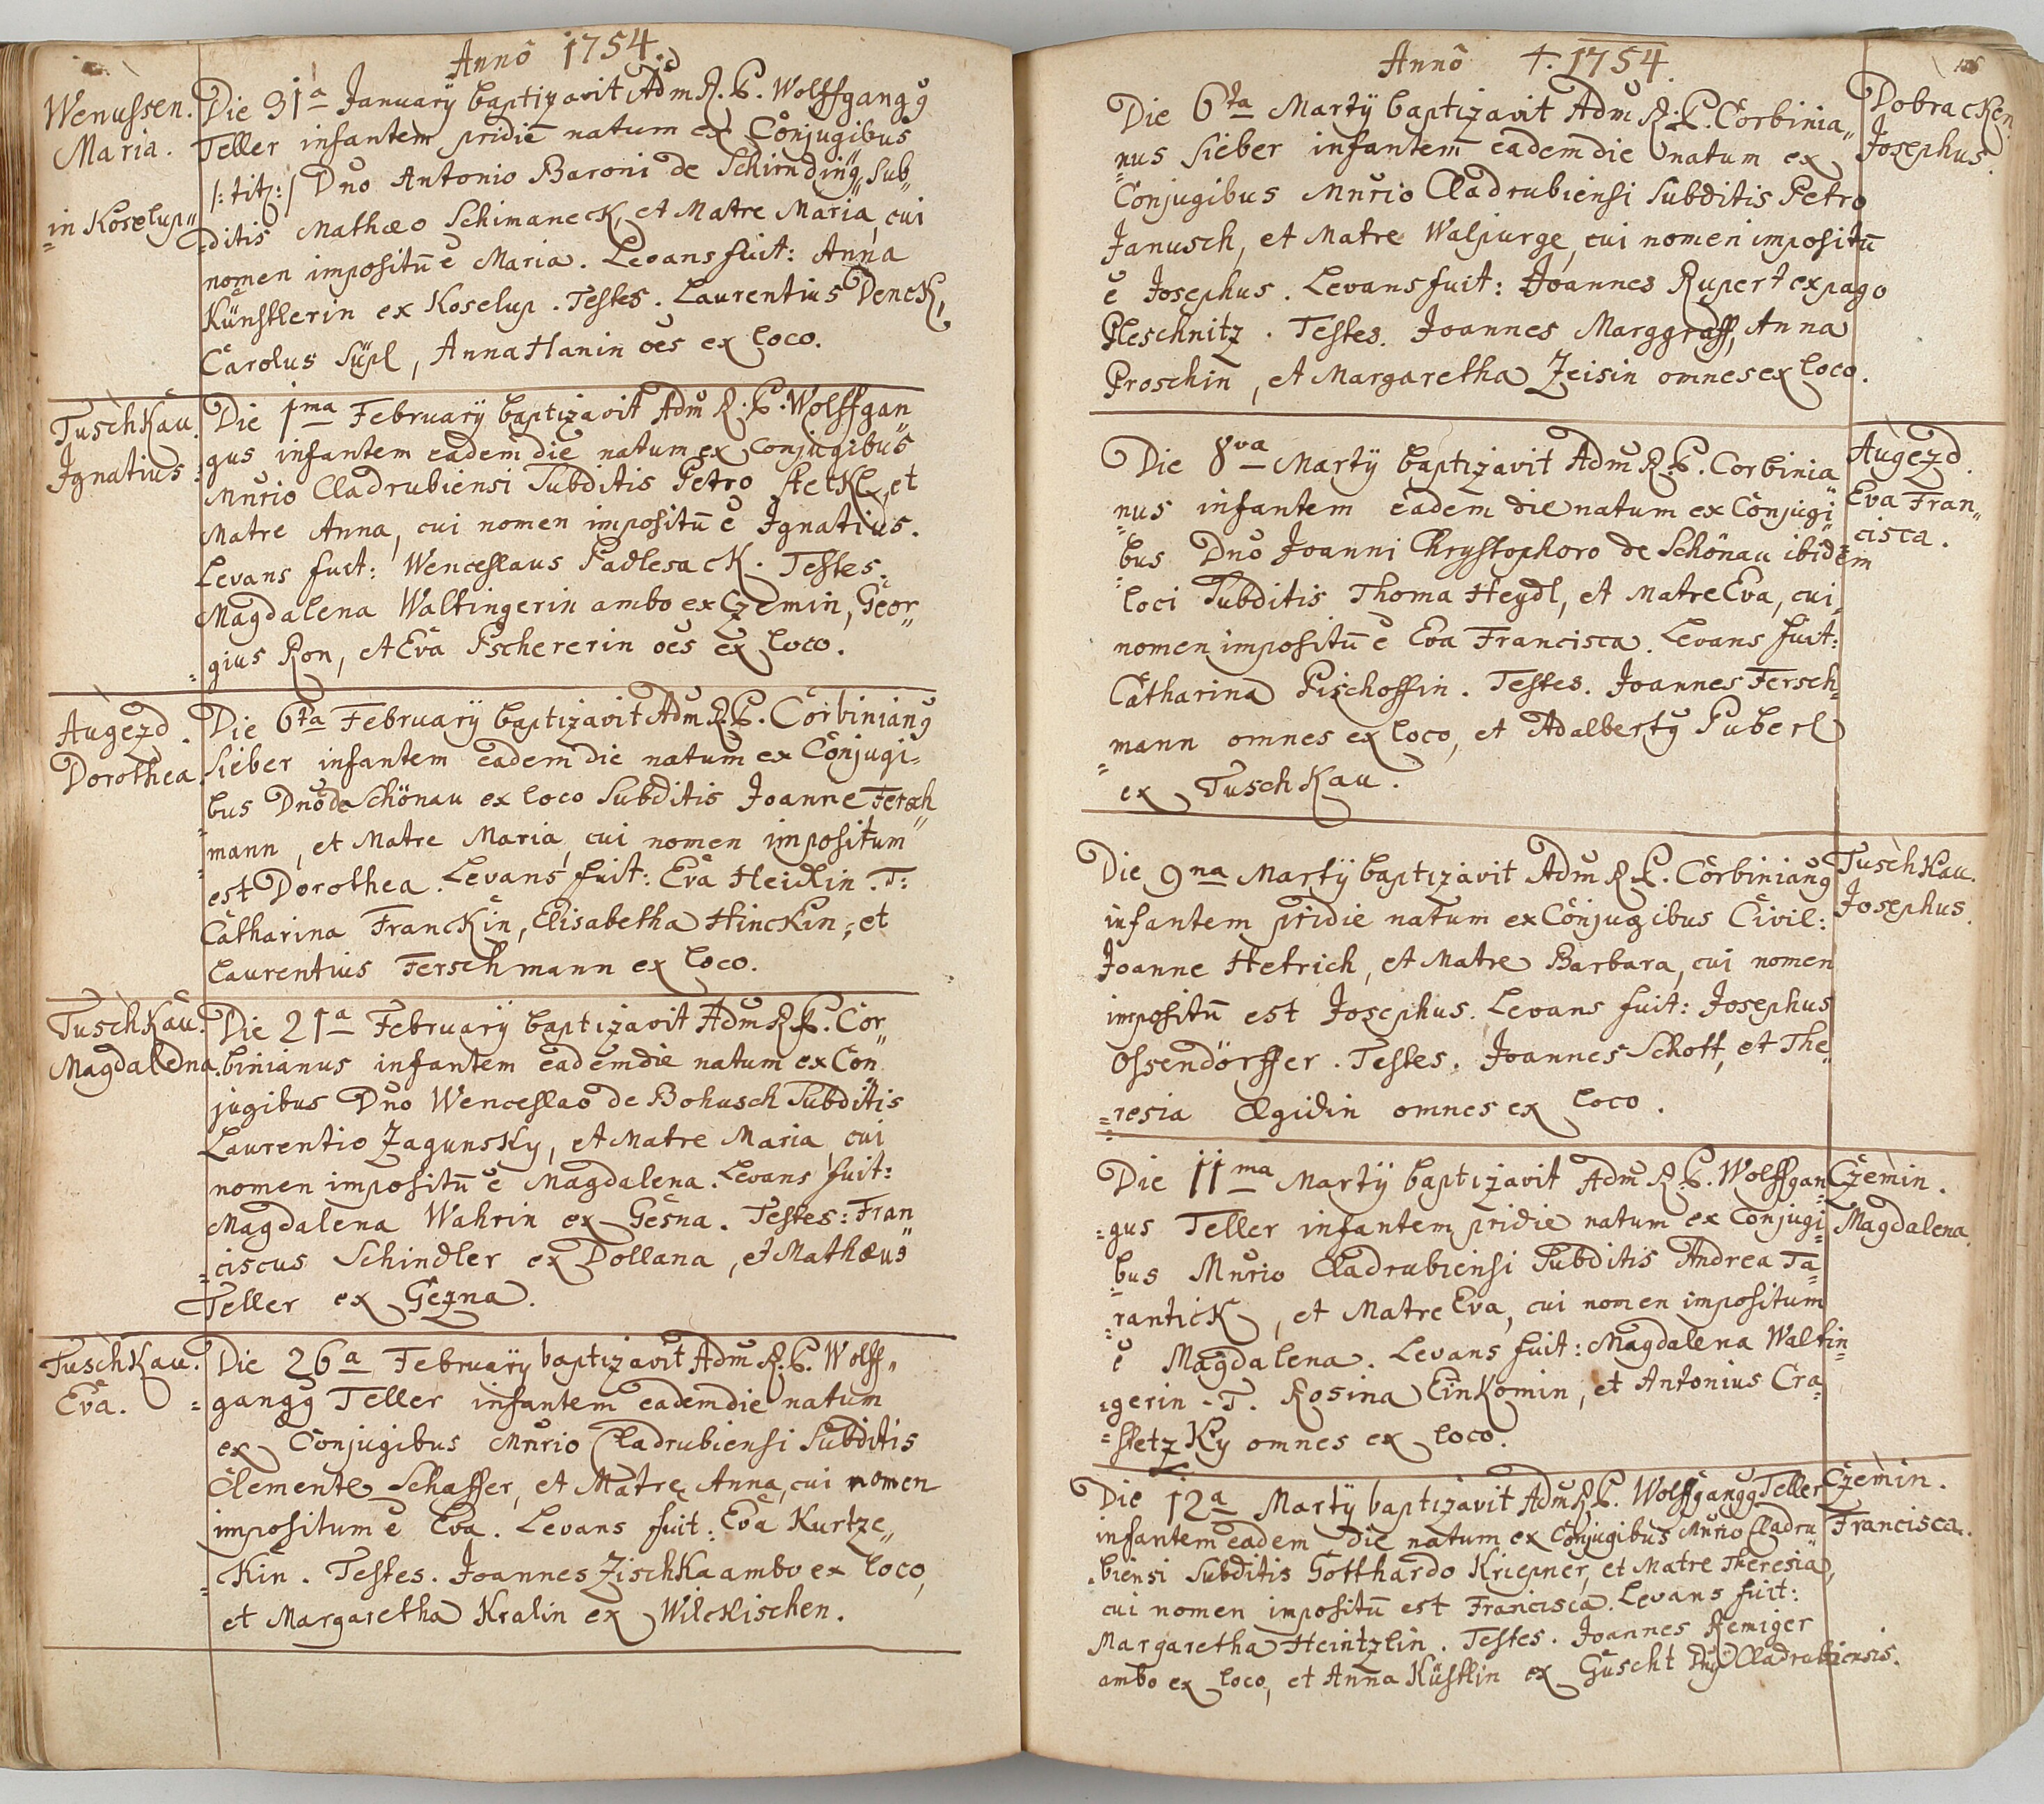 Annô 1754.
Wenussen.
Maria.
in Koselup„
Die 31a January baptizavit Adm R. P. Wolffgangg
Teller infantem pridie natum ex Conjugibus
/: tit: / Dno Antonio Baroni de Schirnding, Sub„
=ditis Mathæo Schimaneck, et Matre Maria, cui
nomen impositū ē Maria. Levans fuit: Anna
Künstlerin ex Koselup. Testes. Laurentius Denck,
Carolus Süpl, Anna Hanin oēs ex loco.
Tuschkau.
Ignatius
Die 1ma February baptizavit Adm R. P. Wolffgan
gus infantem eadem die natum ex conjugibus
Mnrio Cladrubiensi Subditis Petro Stetkl, et
Matre Anna, cui nomen impositū ē Ignatius.
Levans fuit: Wenceslaus Padlesack. Testes.
Magdalena Waltingerin ambo ex Czemin, Geor„
gius Ron, et Eva Pschererin oēs ex loco.
Augezd.
Dorothea.
Die 6ta February baptizavit Adm R. P. Corbiniang
Sieber infantem eadem die natum ex Conjugi=
bus Dno de Schönau ex loco Subditis Joanne Fersch„
mann, et Matre Maria, cui nomen impositum
est Dorothea. Levans fuit: Eva Heidlin. T:
Catharina Franckin, Elisabetha Hinckin, et
Laurentius Ferschmann ex loco.
Tuschkau.
Magdalena.
Die 21a February baptizavit Adm R. P. Cor„
binianus infantem eadem die natum ex Con„
jugibus Dno Wenceslao de Bohusch Subditis
Laurentio Zagunsky, et Matre Maria, cui
nomen impositū ē Magdalena. Levans fuit:
Magdalena Wahrin ex Gesna. Testes: Fran„
=ciscus Schindler ex Dollana, et Mathæus
Teller ex Gezna.
Tuschkau.
Eva.
Die 26a February baptizavit Adm R. P. Wolff„
=gangg Teller infantem eadem die natum
ex Conjugibus Mnrio Cladrubiensi Subditis
Clemente Schaffer, et Matre Anna, cui nomen
impositum ē Eva. Levans fuit: Eva Kurtze„
=kin. Testes. Joannes Zischka ambo ex loco,
et Margaretha Kralin ex Wilckischen.
Annô 1754.
Dobracken
Josephus.
Die 6ta Marty baptizavit Adm R. P. Corbinia„
=nus Sieber infantem eadem die natum ex
Conjugibus Mnrio Cladrubiensi Subditis Petro
Janusch, et Matre Walpurge, cui nomen impositū
ē Josephus. Levans fuit: Joannes Rupert ex pago
Pleschnitz. Testes. Joannes Marggraff, Anna
Proschin, et Margaretha Zeisin omnes ex loco.
Augezd.
Eva Fran„
cisca.
Die 8va Marty baptizavit Adm R. P. Corbinia
=nus infantem eadem die natum ex Conjugi=
=bus Dno Joanni Chrystophoro de Schönau ibidem
loci Subditis Thoma Heydl, et Matre Eva, cui
nomen impositū ē Eva Francisca. Levans fuit:
Catharina Pischoffin. Testes. Joannes Fersch=
=mann omnes ex loco, et Adalbertg Puberl
ex Tuschkau.
Tuschkau.
Josephus.
Die 9na Marty baptizavit Adm R P. Corbiniang
infantem pridie natum ex Conjugibus Civil:
Joanne Hetrich, et Matre Barbara, cui nomen
impositū est Josephus. Levans fuit: Josephus
Ossendörffer. Testes. Joannes Schott, et The„
=resia Ægidin omnes ex loco.
Czemin.
Magdalena.
Die 11ma Marty baptizavit Adm R. P. Wolffgan=
=gus Teller infantem pridie natum ex Conjugi=
=bus Mnrio Cladrubiensi Subditis Andrea Ta=
=rantick, et Matre Eva, cui nomen impositum
ē Magdalena. Levans fuit: Magdalena Waltin=
=gerin. T. Rosina Einkomin, et Antonius Cra=
=stetzky omnes ex loco.
Czemin.
Francisca.
Die 12a Marty baptizavit Adm R P. Wolffgangg Teller
infantem eadem die natum ex Conjugibus Mnrio Cladru
=biensi Subditis Gotthardo Kriepner, et Matre Theresia,
cui nomen impositū est Francisca. Levans fuit:
Margaretha Heintzlin. Testes. Joannes Remiger
ambo ex loco, et Anna Küstlin ex Guscht Cladrubiensis.